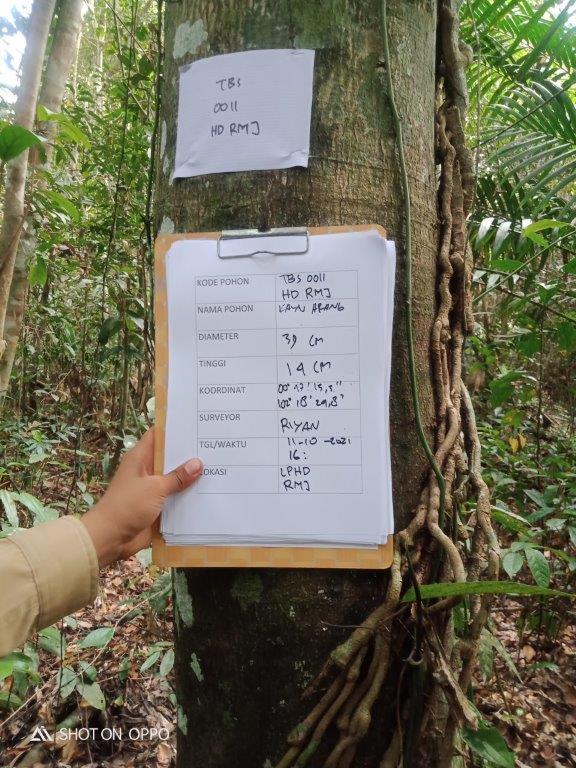 TBS
0011
HD RMJ
KODE POHON TBS 0011
HD RMJ
NAMA POHON KAYU ARANG
DIAMETER 39 CM
TINGGI 14 CM
KOORDINAT
SURVEYOR RIYAN
TGL/WAKTU 11-10-2021
16:
LOKASI LPHD
RMJ
SHOT ON OPPO